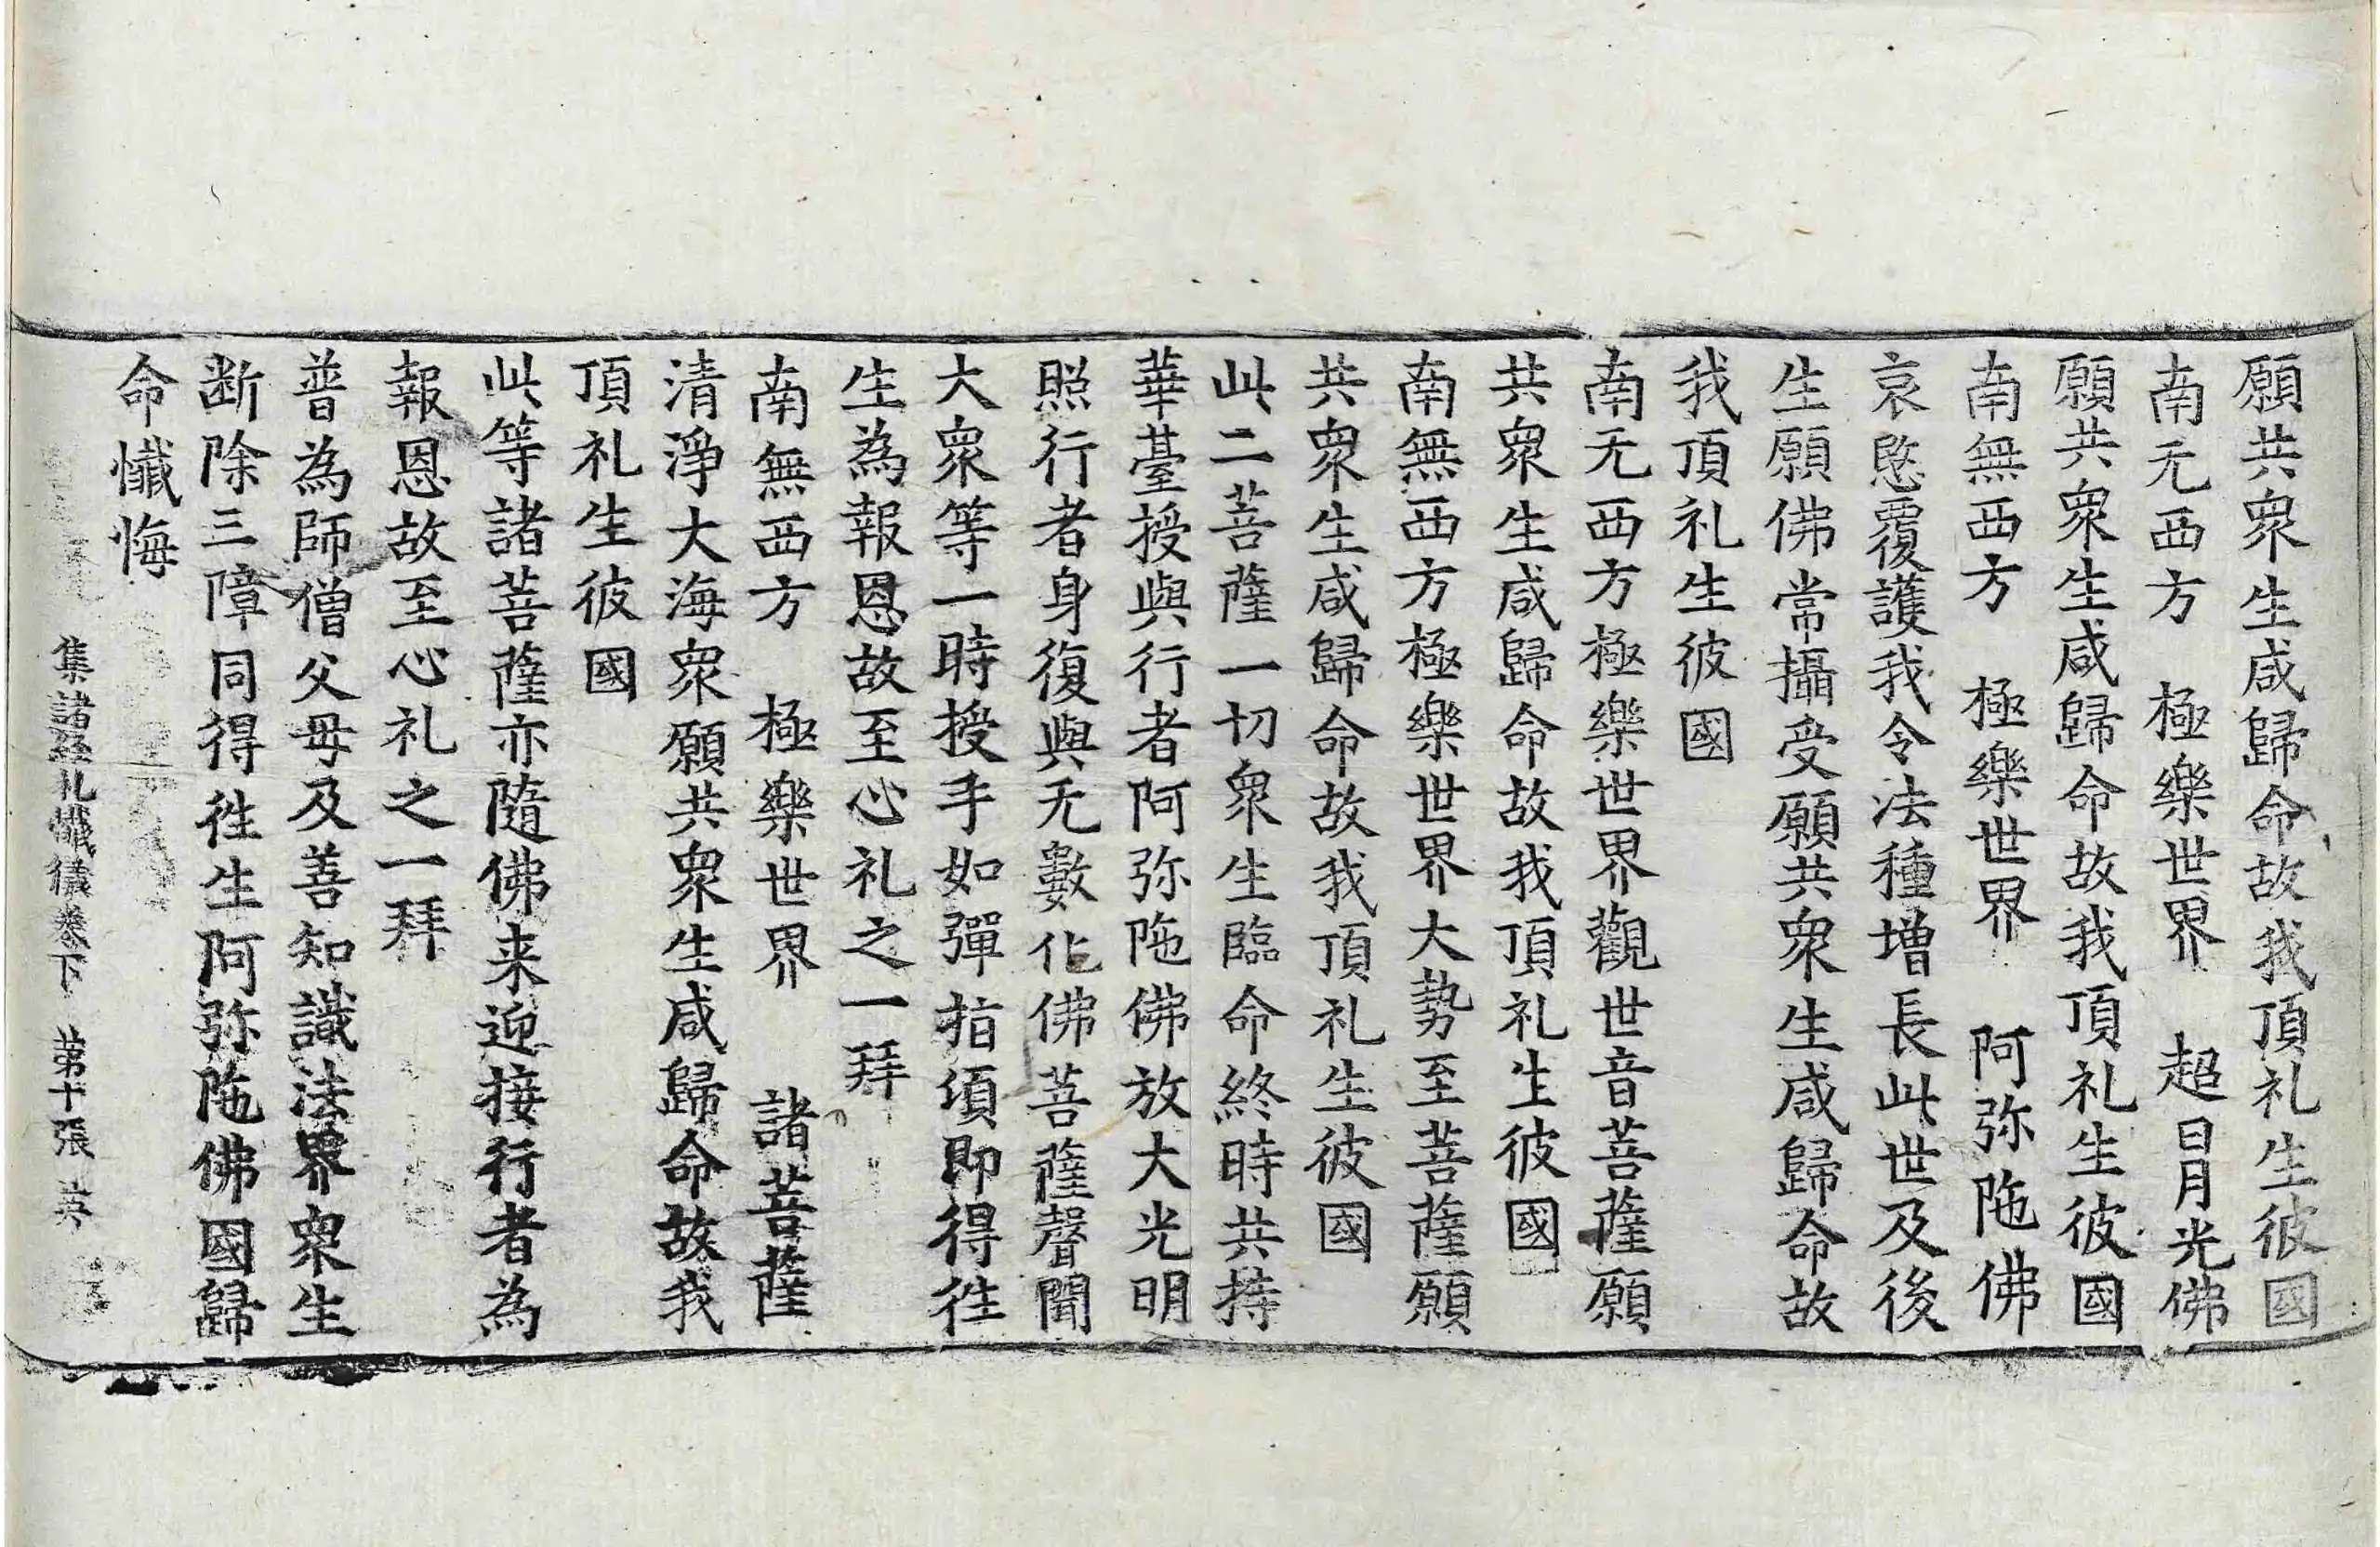 願共衆生咸歸命故我頂礼生彼國
南无西方　極樂世界　超日月光佛
願共衆生咸歸命故我頂礼生彼國
南無西方　極樂世界　阿弥陁佛
哀愍覆護我令法種增長此世及後
生願佛常攝受願共衆生咸歸命故
我頂礼生彼國
南无西方極樂世界觀世音菩薩願
共衆生咸歸命故我頂礼生彼國
南無西方極樂世界大勢至菩薩願
共衆生咸歸命故我頂礼生彼國
此二菩薩一切衆生臨命終時共持
華臺授與行者阿弥陁佛放大光明
照行者身復與无數化佛菩薩聲聞
大衆等一時授手如彈指頃即得往
生為報恩故至心礼之一拜
南無西方　極樂世界　諸菩薩
清淨大海衆願共衆生咸歸命故我
頂礼生彼國
此等諸菩薩亦隨佛来迎接行者為
報恩故至心礼之一拜
普為師僧父母及善知識法界衆生
断除三障同得往生阿弥陁佛國歸
命懺悔
集諸經礼懺儀卷下　第十張　英